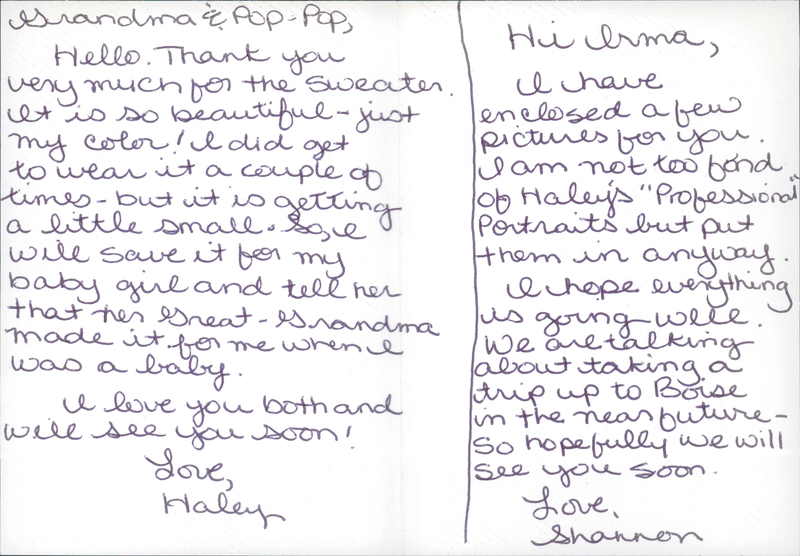 Grandma & Pop-Pop,
Hello. Thank you
very much for the sweater.
It is so beautiful - just
my color! I did get
to wear it a couple of
times - but it is getting
a little small. So, I
will save it for my
baby girl and tell her
that her Great-Grandma
made it for me when I
was a baby.
I love you both and
will see you soon!
Love,
Haley
Hi Irma,
I have
enclosed a few
pictures for you.
I am not too fond
of Haley's "Professional"
Portraits but put
them in anyway.
I hope everything
is going well.
We are talking
about taking a
trip up to Boise
in the near future -
so hopefully we will
see you soon.
Love,
Shannon